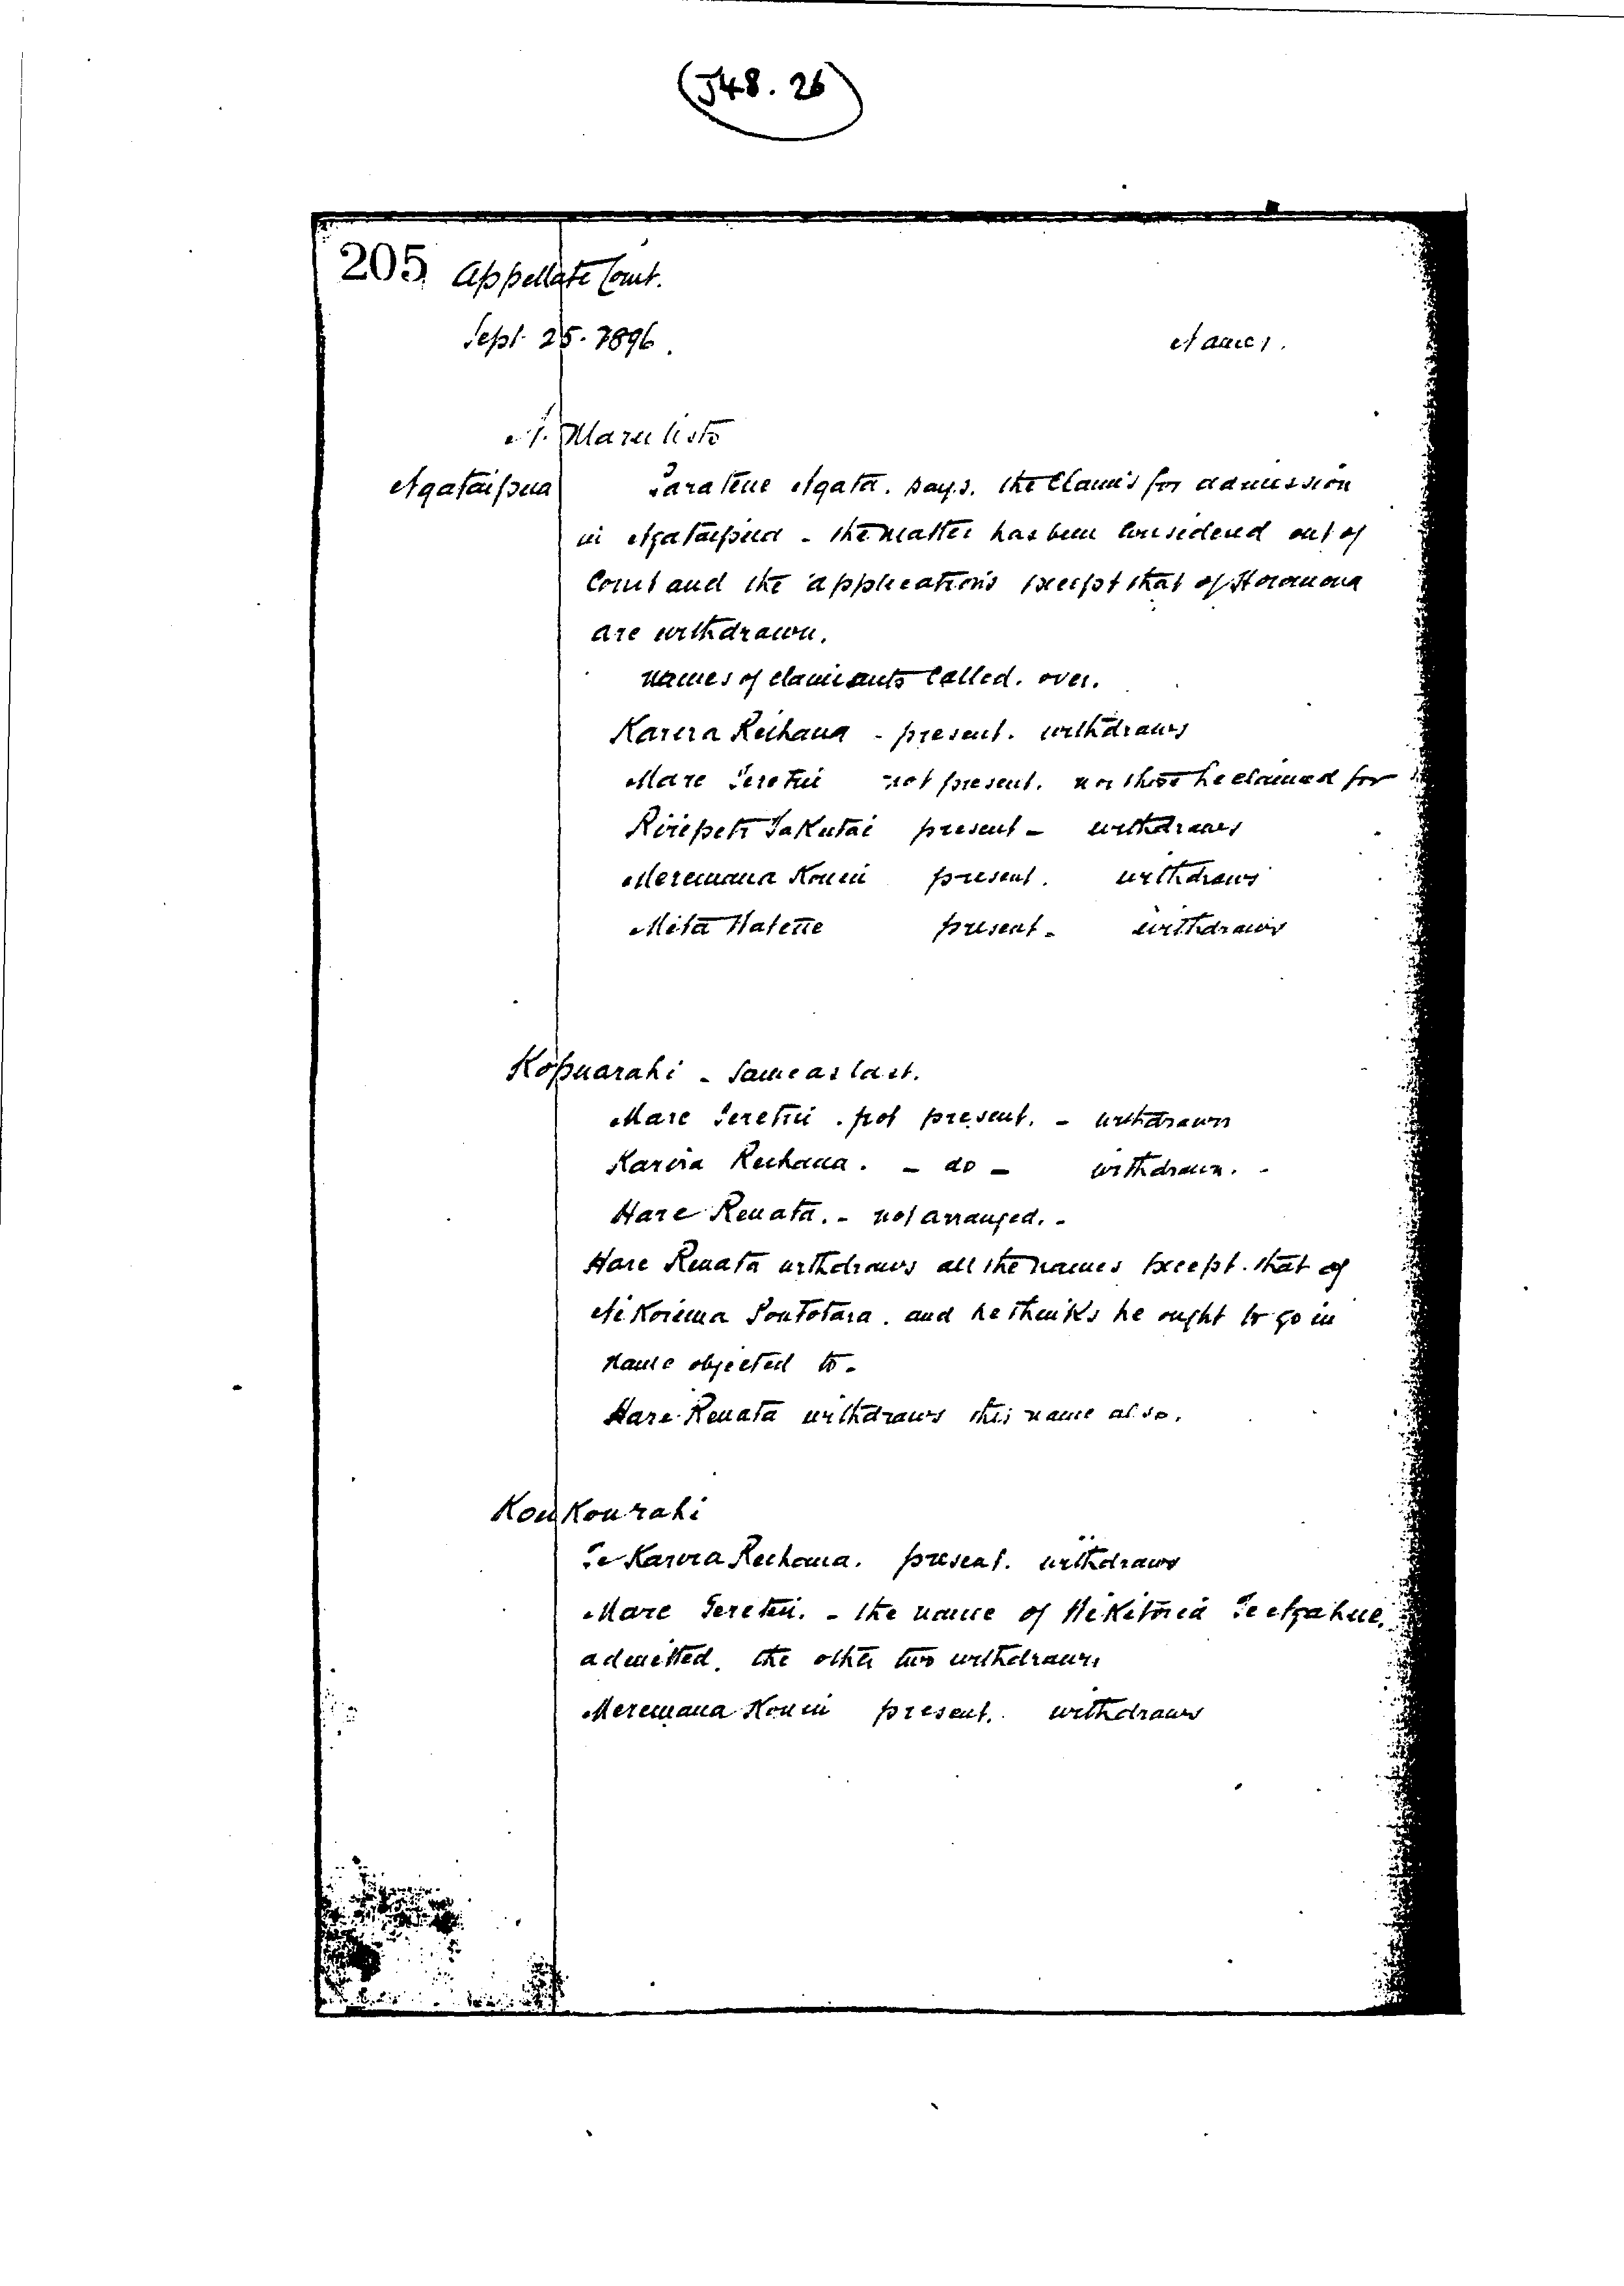 (J48. 26)
205 Appellate Court.
Sept. 25. 1896. Names.
Ngataipua Paratene Ngata. says. the Claims for admission
in Ngataipua - the matter has been considered out of
Court and the applications except that of Horomona
are withdrawn.
names of claimants called. over.
Karira Reihana - present. withdraws
Mare Teretiu not present. nor those he claimed for
Riripeti Takutai present - withdraws
Meremana Konui present. withdraws
Mita Hatete present - withdraws
Kopuarahi - same as last.
Mare Teretiu. not present. - withdrawn
Karira Reihana. - do - withdrawn. -
Hare Renata. - not arranged. -
Hare Renata withdraws all the names except. that of
and he thinks he ought to go in
name objected to -
Hare Renata withdraws this name also.
Koukourahi
Te Karira Reihana. present. withdraws
Mare Teretiu. - the name of Wikitoria Te Ngahue.
admitted. the other two withdrawn
Meremana Konui present. withdraws